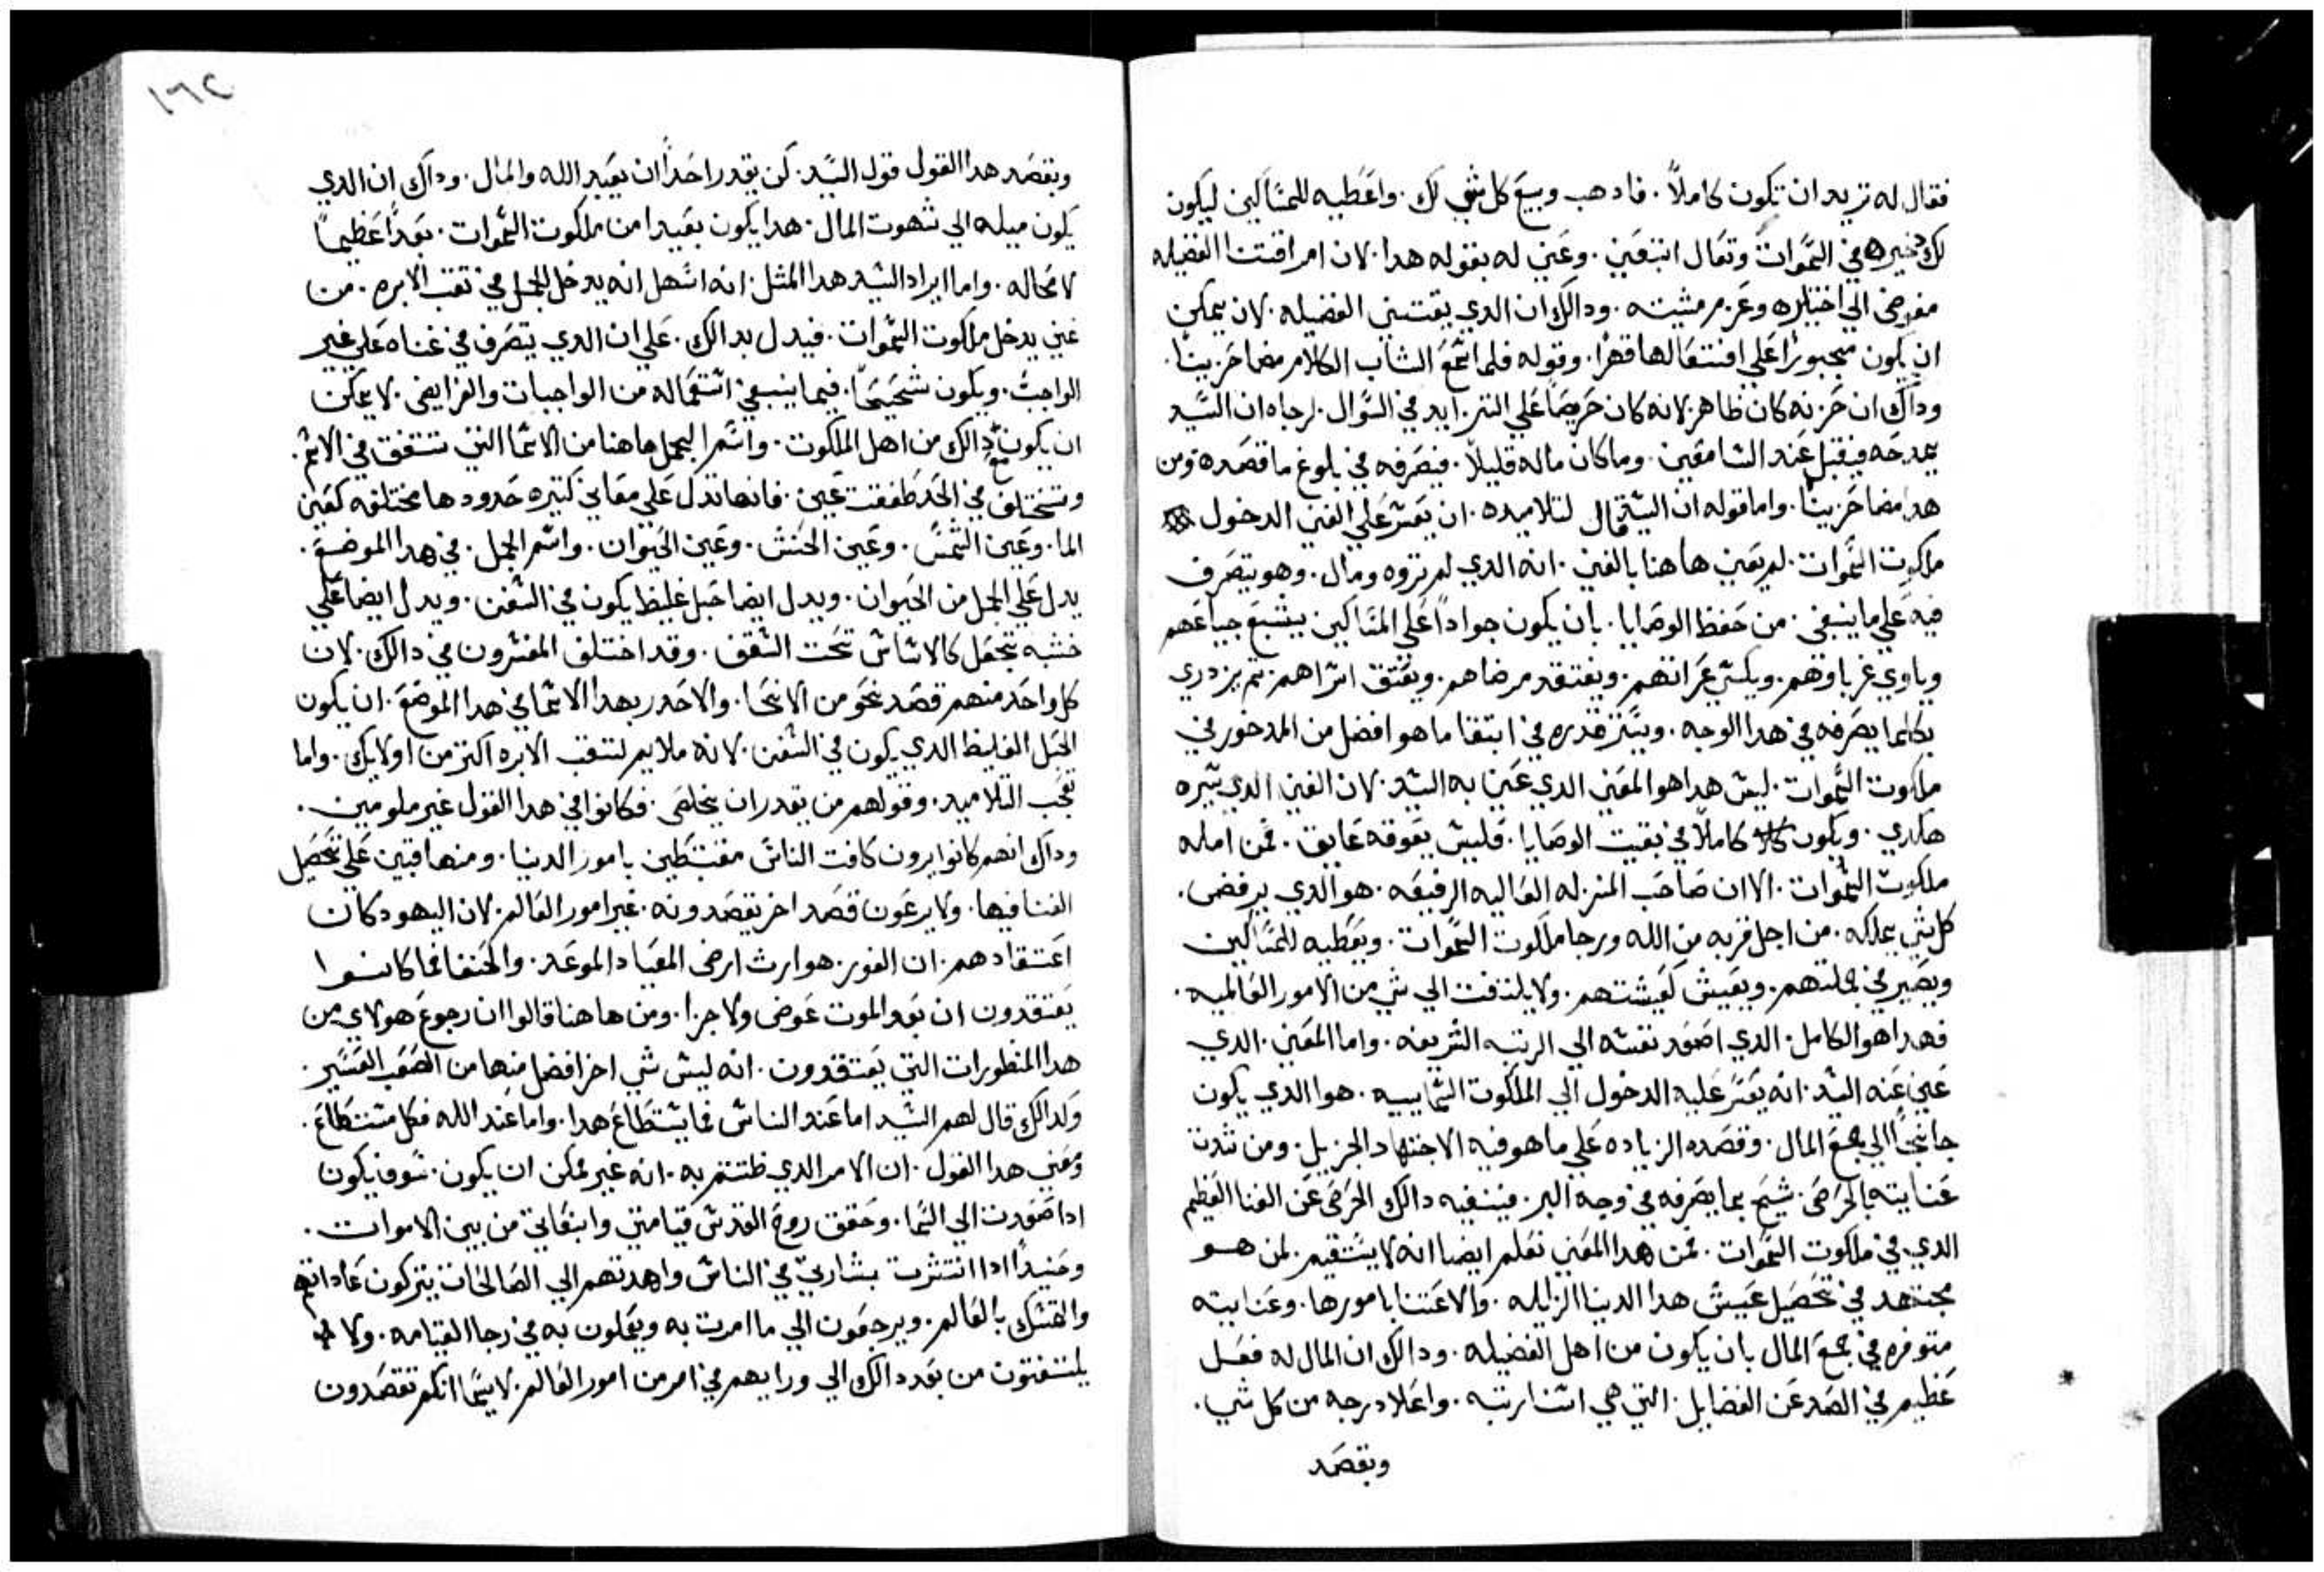 فقال له تريد ان تكون كاملاً. فادهب وبيع كل شي لك. واعطيه للمساكين ليكون
لك دخيره في السموات وتعال اتبعني. وعني له بقوله هدا. لان امر اقتنا الفضيله
مفوض الي اختياره وعزم مشيته. ودالك ان الدي يقتني الفضيله. لان يمكن
ان يكون مجبوراً علي افتعالها قهراً. وقوله فلما سمع الشاب الكلام مضا حزيناً.
وداك ان حزنه كان ظاهر لانه كان حريصاً علي التزايد في السوال. لرجاه ان السيد
يمدحه فيقبل عند السامعين. وما كان ماله قليلاً. فيصرفه في بلوغ ما قصده ومن
هدا مضا حزيناً. واما قوله ان السيد قال لتلاميده. ان يعسر علي الغني الدخول
ملكوت السموات. لم يعني هاهنا بالغني. انه الدي لم تروه ومال. وهو يتصرف
فيه علي ما ينبغي. من حفظ الوصايا. بان يكون جواداً علي المساكين يشبع جياعهم
وياوي غرباوهم. ويكسي عراتهم. ويفتقد مرضاهم. ويعتق اسراهم. تم يزدري
بكلما يصرفه في هدا الوجه. ويستنزقدره في ابتغا ما هو افضل من المدخور في
ملكوت السموات. ليس هدا هو المعني الدي عني به السيد. لان الغني الدي سيره
هكدي. ويكون كاملاً في بقيت الوصايا. فليس يعوقه عايق. عن امله
ملكوت السموات. الا ان صاحب المنزله العاليه الرفيعه. هو الدي يرفض.
كل شي يملكه. من اجل قربه من الله ورجا ملكوت السموات. ويعطيه للمساكين
ويصير في جملتهم. ويعيش كعيشتهم. ولا يلتفت الي شي من الامور العالميه.
فهدا هو الكامل. الدي اصعد نفسه الي الرتبه الشريفه. واما المعني. الدي
عني عنه السيد. انه يعسر عليه الدخول الي الملكوت السماييه. هو الدي يكون
جانحاً الي جمع المال. وقصده الزياده علي ما هو فيه الاجتهاد الجزيل. ومن شدت
عنايته بالحرص. شيح بما يصرفه في وجه البر. فينفيه دالك الحرص عن الغنا العظيم
الدي في ملكوت السموات. فمن هدا المعني نعلم ايضا انه لا يستقيم. لمن هو
مجتهد في تحصيل عيش هدا الدنيا الزايله. والاعتنا بامورها. وعنايته
متوفره في جمع المال بان يكون من اهل الفضيله. ودالك ان المال له فعل
عظيم في الصد عن الفضايل. التي هي اسنا رتبه. واعلا درجه من كل شي.
وبقصد
١٦٢
وبقصد هدا القول قول السيد. لن يقدر احداً ان يعبد الله والمال. وداك ان الدي
يكون ميله الي شهوت المال. هدا يكون بعيدا من ملكوت السموات. بعداً عظيماً
لا محاله. واما ايراد السيد هدا المثل. انه اسهل انه يدخل الجمل في تقب الابره. من
غني يدخل ملكوت السموات. فيدل بدالك. علي ان الدي يتصرف في غناه علي غير
الواجب. ويكون شحيحاً. فيما ينبغي استعماله من الواجبات والفرايض. لا يمكن
ان يكون مع دالك من اهل الملكوت. واسم الجمل هاهنا من الاسما التي تتفق في الاسم.
وتختلف في الحد كلفظت عين. فانها تدل علي معاني كتيره حدودها مختلفه كعين
الما. وعين الشمس. وعين الحنش. وعين الحيوان. واسم الجمل. في هدا الموضع.
يدل علي الجمل من الحيوان. ويدل ايضا حبل غليظ يكون في السفن. ويدل ايضا علي
خشبه تجعل كالاساس تحت السقف. وقد اختلف المفسرون في دالك. لان
كل واحد منهم قصد نحو من الانحا. والاجدر بهدا الاسما في هدا الموضع. ان يكون
الحبل الغليظ الدي يكون في السفن. لانه ملايم لتقب الابره اكتر من اولايك. واما
تعجب التلاميد. وقولهم من يقدر ان يخلص. فكانوا في هدا القول غير ملومين.
وداك انهم كانوا يرون كافت الناس مغتبطين بامور الدنيا. ومتهافتين علي تحصيل
الغنا فيها. ولا يرعون قصد اخر يقصدونه. غير امور العالم. لان اليهود كان
اعتقادهم. ان الفوز. هو ارث ارض الميعاد الموعد. والحنفا فما كانوا
يعتقدون ان بعد الموت عوض ولا جزا. ومن هاهنا قالوا ان رجوع هولاي من
هدا المنظورات التي يعتقدون. انه ليس شي اخر افضل منها من الصعب العسير.
ولدالك قال لهم السيد اما عند الناس فما يستطاع هدا. واما عند الله فكل مستطاع.
ومعني هدا القول. ان الامر الدي ظننتم به. انه غير ممكن ان يكون. سوف يكون
ادا صعدت الي السما. وحقق روح القدس قيامتي وانبعاتي من بين الاموات.
وحنيداً ادا انتشرت بشارتي في الناس واهدتهم الي الصالحات يتركون عاداتهم
والتمسك بالعالم. ويرجعون الي ما امرت به ويعملون به في رجا القيامه. ولا
يلتفتون من بعد دالك الي ورايهم في امر من امور العالم. لاسيما انكم تقصدون